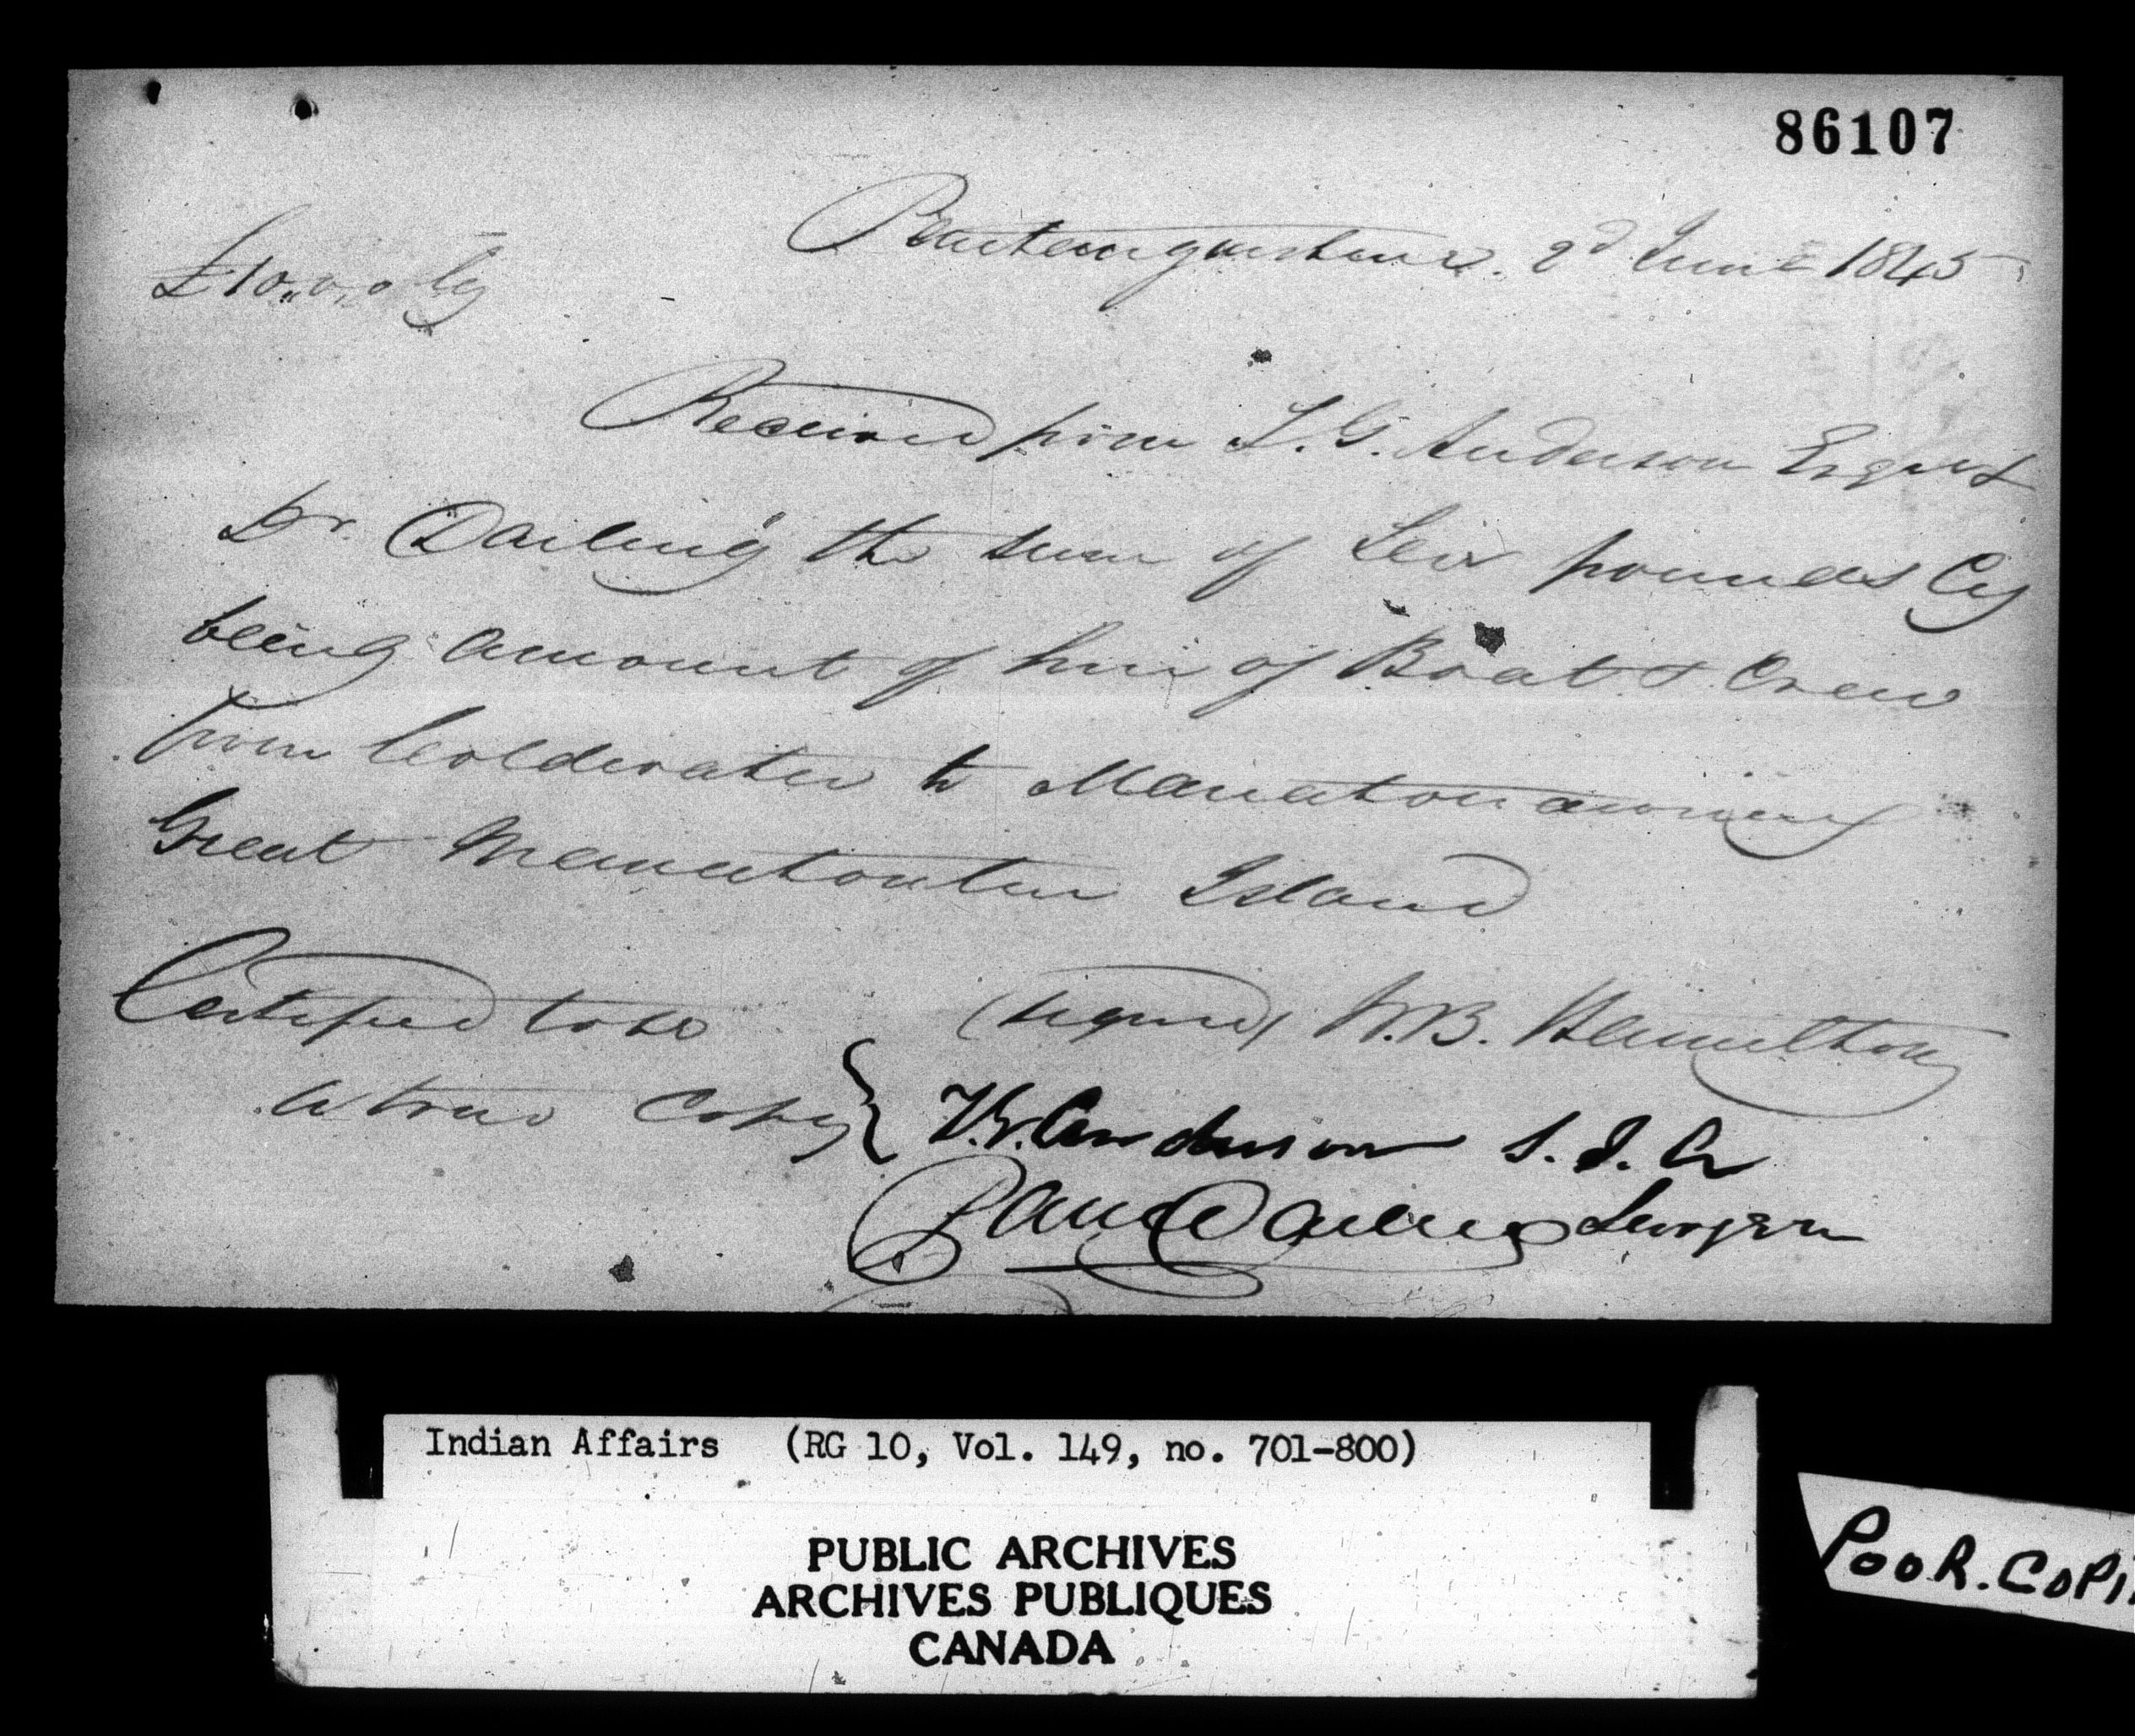 86107
Penetanguishene. 2d June 1845
£10,,0,,0 Cy
Received from T. G. Anderson Esqr &
Dr. Darling the sum of Ten pounds Cy
being amount of hire of Boat & Crew
from Coldwater to Manatouawning
Great Manatoulin Island
Certified to be (signed) W.B. Hamilton
a true Copy } T.G. Anderson S.I.A
Darling Surgeon
Indian Affairs (RG 10, Vol. 149, no. 701-800)
PUBLIC ARCHIVES
ARCHIVES PUBLIQUES
CANADA
POOR.COPI